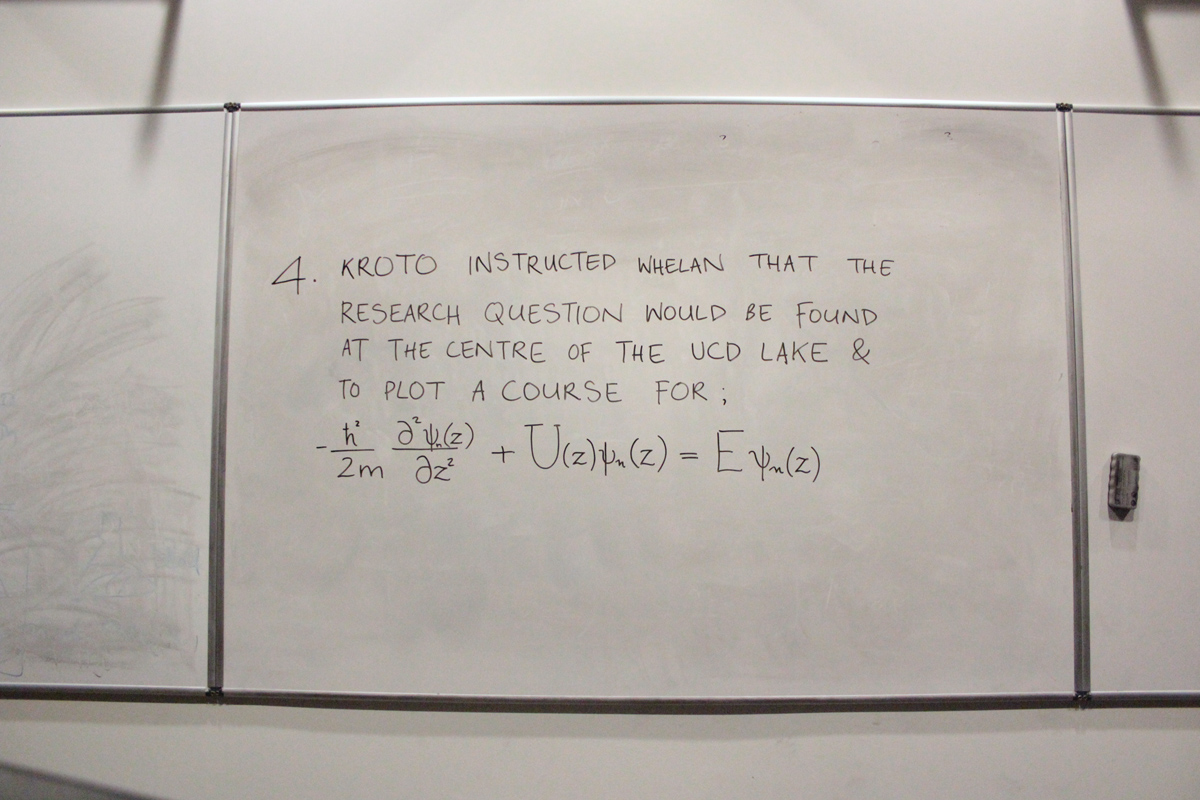 4. KROTO INSTRUCTED WHELAN THAT THE
RESEARCH QUESTION WOULD BE FOUND
AT THE CENTRE OF THE UCD LAKE &
TO PLOT A COURSE FOR;
-ħ²/2m ∂²ψₙ(z)/∂z² + U(z)ψₙ(z) = Eψₙ(z)